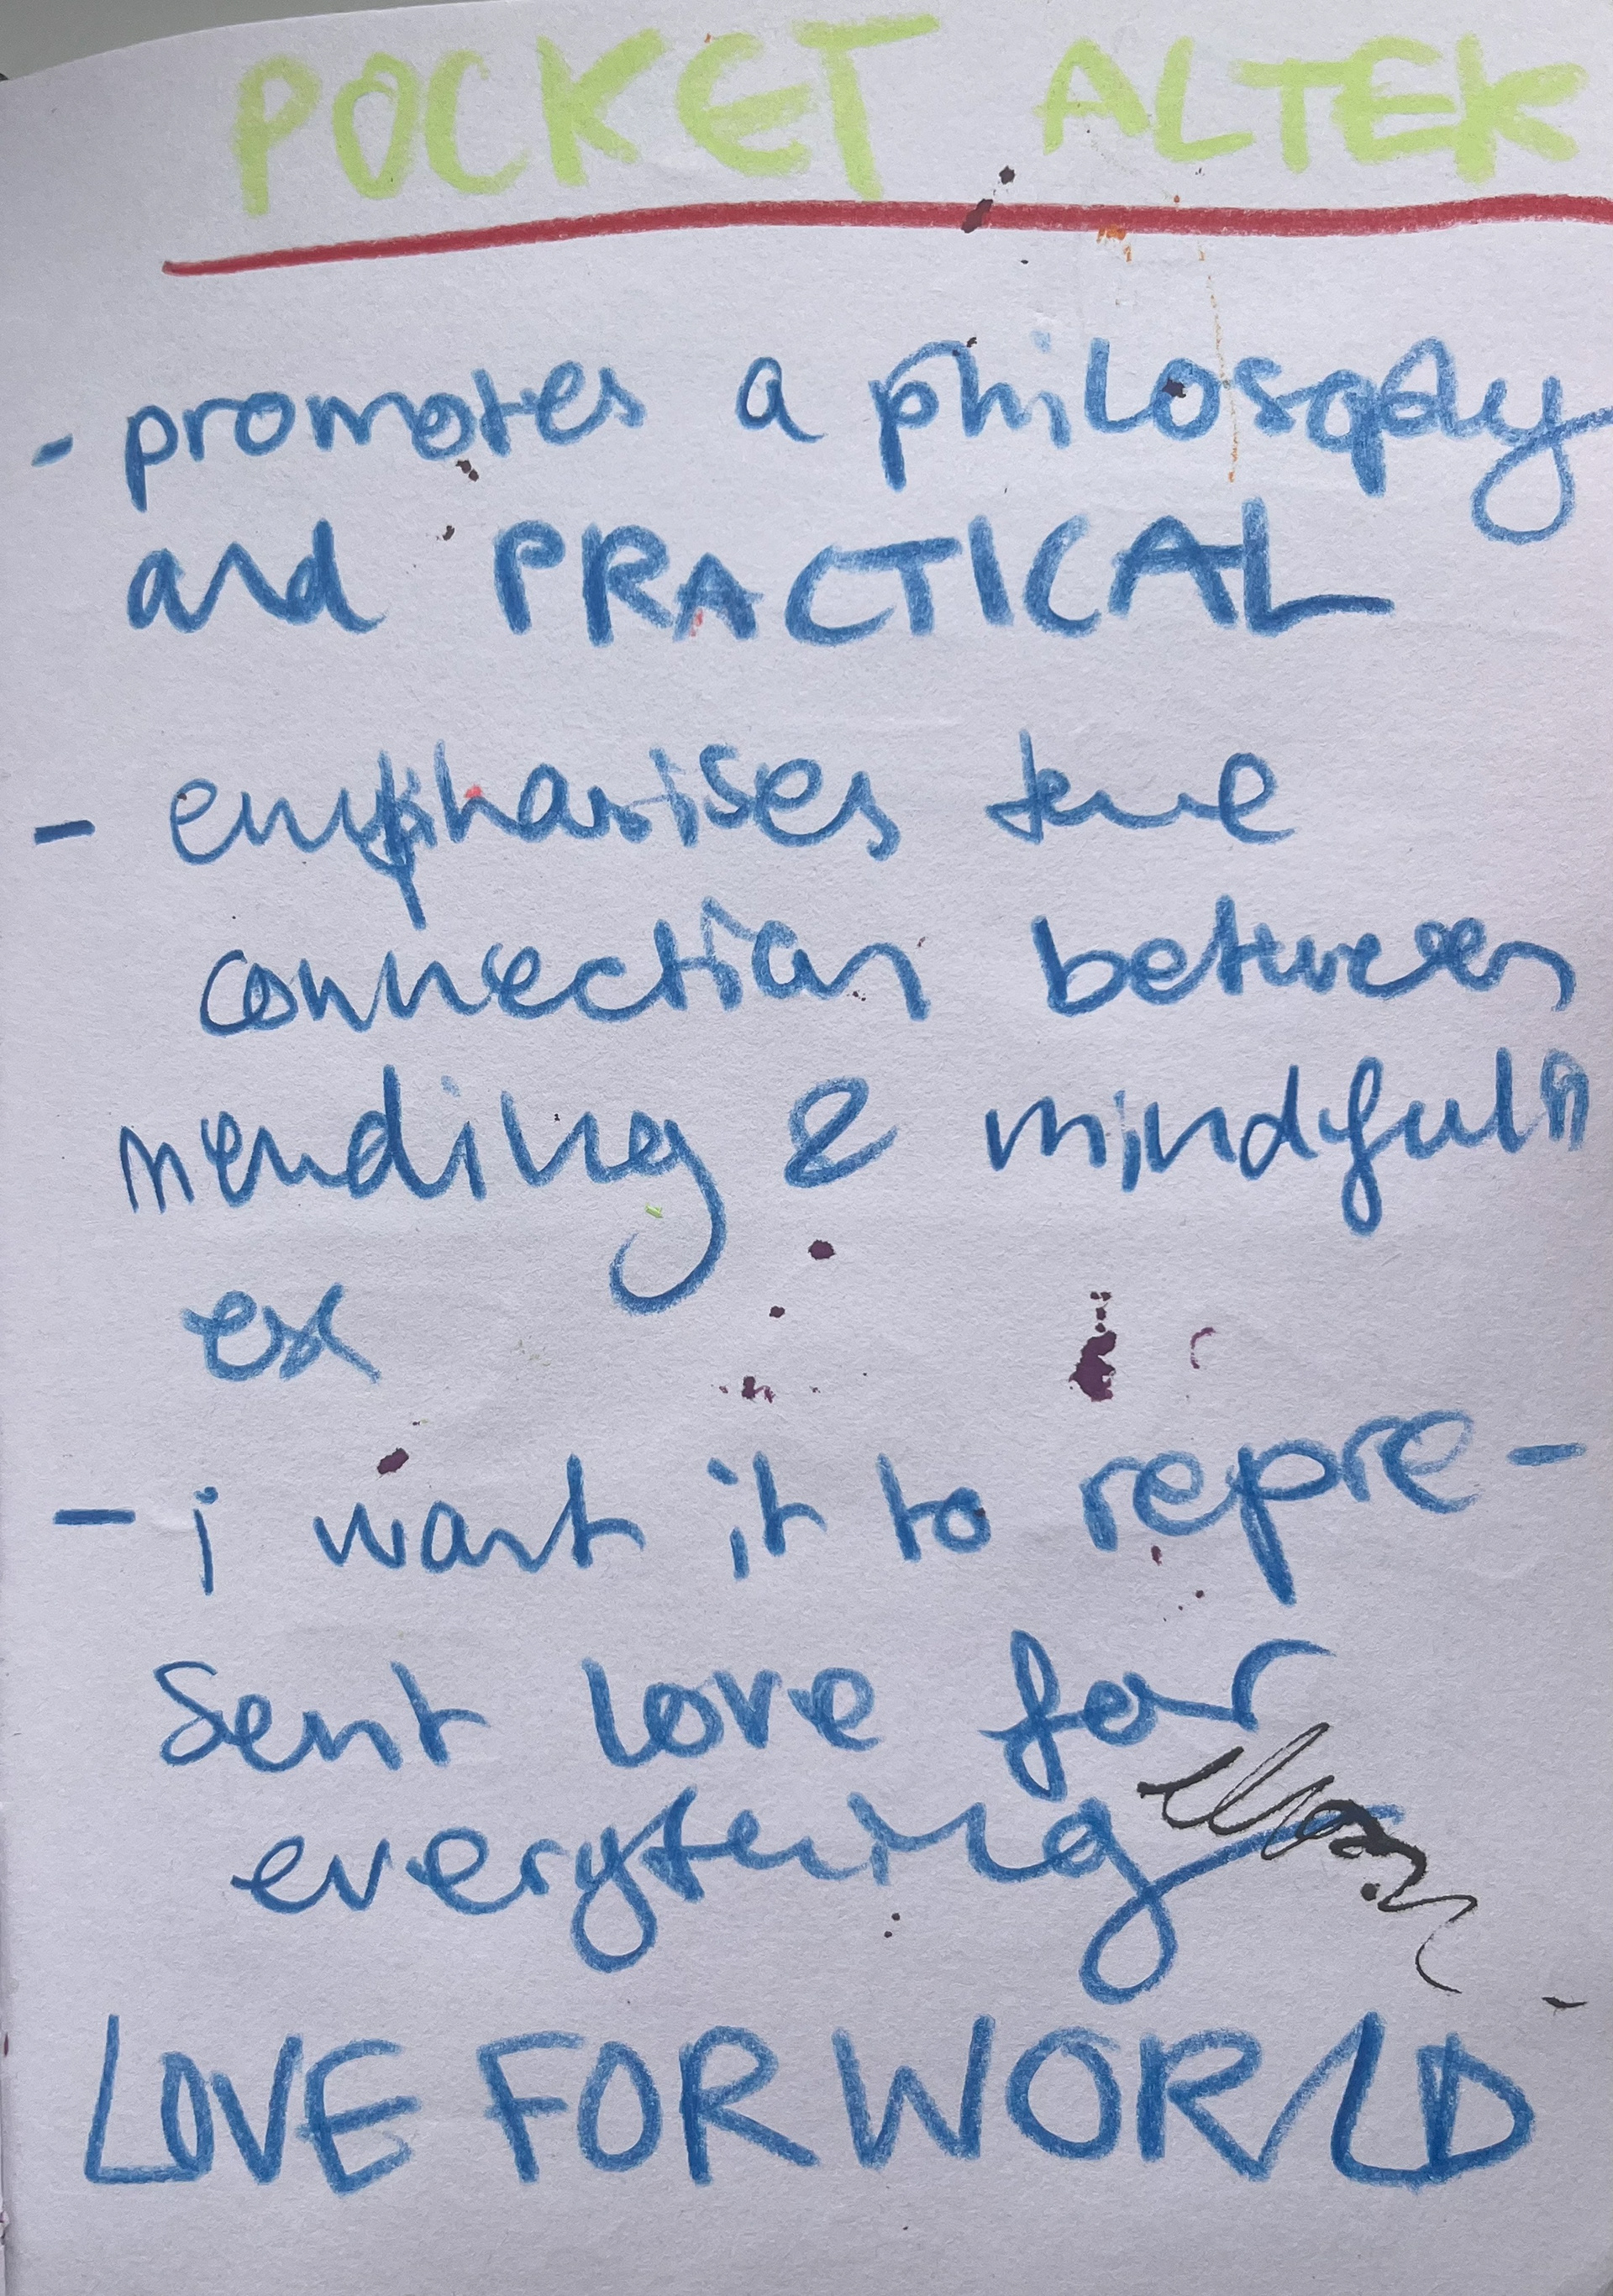 POCKET ALTER
- promotes a philosophy
and PRACTICAL
- emphasises the
connection between
mending & mindfuln
ex
- i want it to repre-
sent love for
everything
LOVE FOR WORLD